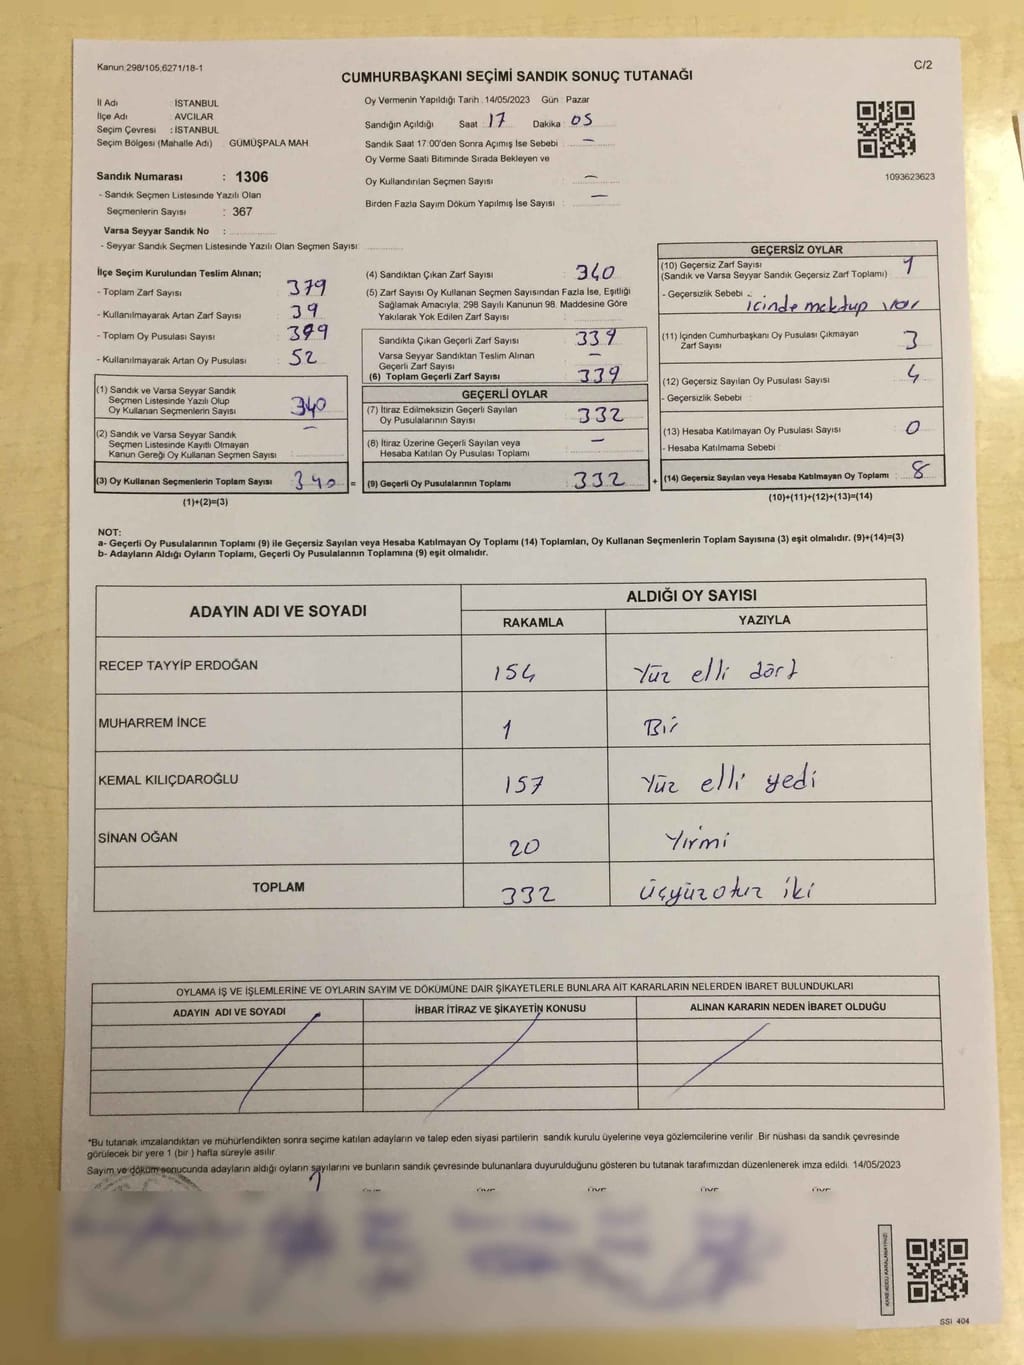 Kanun:298/105,6271/18-1
C/2
CUMHURBAŞKANI SEÇİMİ SANDIK SONUÇ TUTANAĞI
İl Adı : İSTANBUL
İlçe Adı : AVCILAR
Seçim Çevresi : İSTANBUL
Seçim Bölgesi (Mahalle Adı) : GÜMÜŞPALA MAH.
Sandık Numarası : 1306
- Sandık Seçmen Listesinde Yazılı Olan
Seçmenlerin Sayısı : 367
Varsa Seyyar Sandık No :
- Seyyar Sandık Seçmen Listesinde Yazılı Olan Seçmen Sayısı:
Oy Vermenin Yapıldığı Tarih : 14/05/2023 Gün : Pazar
Sandığın Açıldığı Saat : 17 Dakika : 05
Sandık Saat 17:00'den Sonra Açımış İse Sebebi : —
Oy Verme Saati Bitiminde Sırada Bekleyen ve
Oy Kullandırılan Seçmen Sayısı : —
Birden Fazla Sayım Döküm Yapılmış İse Sayısı : —
1093623623
İlçe Seçim Kurulundan Teslim Alınan;
- Toplam Zarf Sayısı : 379
- Kullanılmayarak Artan Zarf Sayısı : 39
- Toplam Oy Pusulası Sayısı : 399
- Kullanılmayarak Artan Oy Pusulası : 52
(1) Sandık ve Varsa Seyyar Sandık
Seçmen Listesinde Yazılı Olup
Oy Kullanan Seçmenlerin Sayısı : 340
(2) Sandık ve Varsa Seyyar Sandık
Seçmen Listesinde Kayıtlı Olmayan
Kanun Gereği Oy Kullanan Seçmen Sayısı : —
(3) Oy Kullanan Seçmenlerin Toplam Sayısı : 340 =
(1)+(2)=(3)
(4) Sandıktan Çıkan Zarf Sayısı : 340
(5) Zarf Sayısı Oy Kullanan Seçmen Sayısından Fazla İse, Eşitliği
Sağlamak Amacıyla; 298 Sayılı Kanunun 98. Maddesine Göre
Yakılarak Yok Edilen Zarf Sayısı :
Sandıkta Çıkan Geçerli Zarf Sayısı : 339
Varsa Seyyar Sandıktan Teslim Alınan
Geçerli Zarf Sayısı : —
(6) Toplam Geçerli Zarf Sayısı : 339
GEÇERLİ OYLAR
(7) İtiraz Edilmeksizin Geçerli Sayılan
Oy Pusulalarının Sayısı : 332
(8) İtiraz Üzerine Geçerli Sayılan veya
Hesaba Katılan Oy Pusulası Toplamı : —
(9) Geçerli Oy Pusulalarının Toplamı : 332 +
GEÇERSİZ OYLAR
(10) Geçersiz Zarf Sayısı : 1
(Sandık ve Varsa Seyyar Sandık Geçersiz Zarf Toplamı)
- Geçersizlik Sebebi : içinde mektup var
(11) İçinden Cumhurbaşkanı Oy Pusulası Çıkmayan
Zarf Sayısı : 3
(12) Geçersiz Sayılan Oy Pusulası Sayısı : 4
- Geçersizlik Sebebi :
(13) Hesaba Katılmayan Oy Pusulası Sayısı : 0
- Hesaba Katılmama Sebebi :
(14) Geçersiz Sayılan veya Hesaba Katılmayan Oy Toplamı : 8
(10)+(11)+(12)+(13)=(14)
NOT:
a- Geçerli Oy Pusulalarının Toplamı (9) ile Geçersiz Sayılan veya Hesaba Katılmayan Oy Toplamı (14) Toplamları, Oy Kullanan Seçmenlerin Toplam Sayısına (3) eşit olmalıdır. (9)+(14)=(3)
b- Adayların Aldığı Oyların Toplamı, Geçerli Oy Pusulalarının Toplamına (9) eşit olmalıdır.
ADAYIN ADI VE SOYADI
ALDIĞI OY SAYISI
RAKAMLA YAZIYLA
RECEP TAYYİP ERDOĞAN 154 Yüz elli dört
MUHARREM İNCE 1 Bir
KEMAL KILIÇDAROĞLU 157 Yüz elli yedi
SİNAN OĞAN 20 Yirmi
TOPLAM 332 üçyüzotuz iki
OYLAMA İŞ VE İŞLEMLERİNE VE OYLARIN SAYIM VE DÖKÜMÜNE DAİR ŞİKAYETLERLE BUNLARA AİT KARARLARIN NELERDEN İBARET BULUNDUKLARI
ADAYIN ADI VE SOYADI İHBAR İTİRAZ VE ŞİKAYETİN KONUSU ALINAN KARARIN NEDEN İBARET OLDUĞU
*Bu tutanak imzalandıktan ve mühürlendikten sonra seçime katılan adayların ve talep eden siyasi partilerin sandık kurulu üyelerine veya gözlemcilerine verilir. Bir nüshası da sandık çevresinde
görülecek bir yere 1 (bir ) hafta süreyle asılır.
Sayım ve döküm sonucunda adayların aldığı oyların sayılarını ve bunların sandık çevresinde bulunanlara duyurulduğunu gösteren bu tutanak tarafımızdan düzenlenerek imza edildi. 14/05/2023
SSİ 404